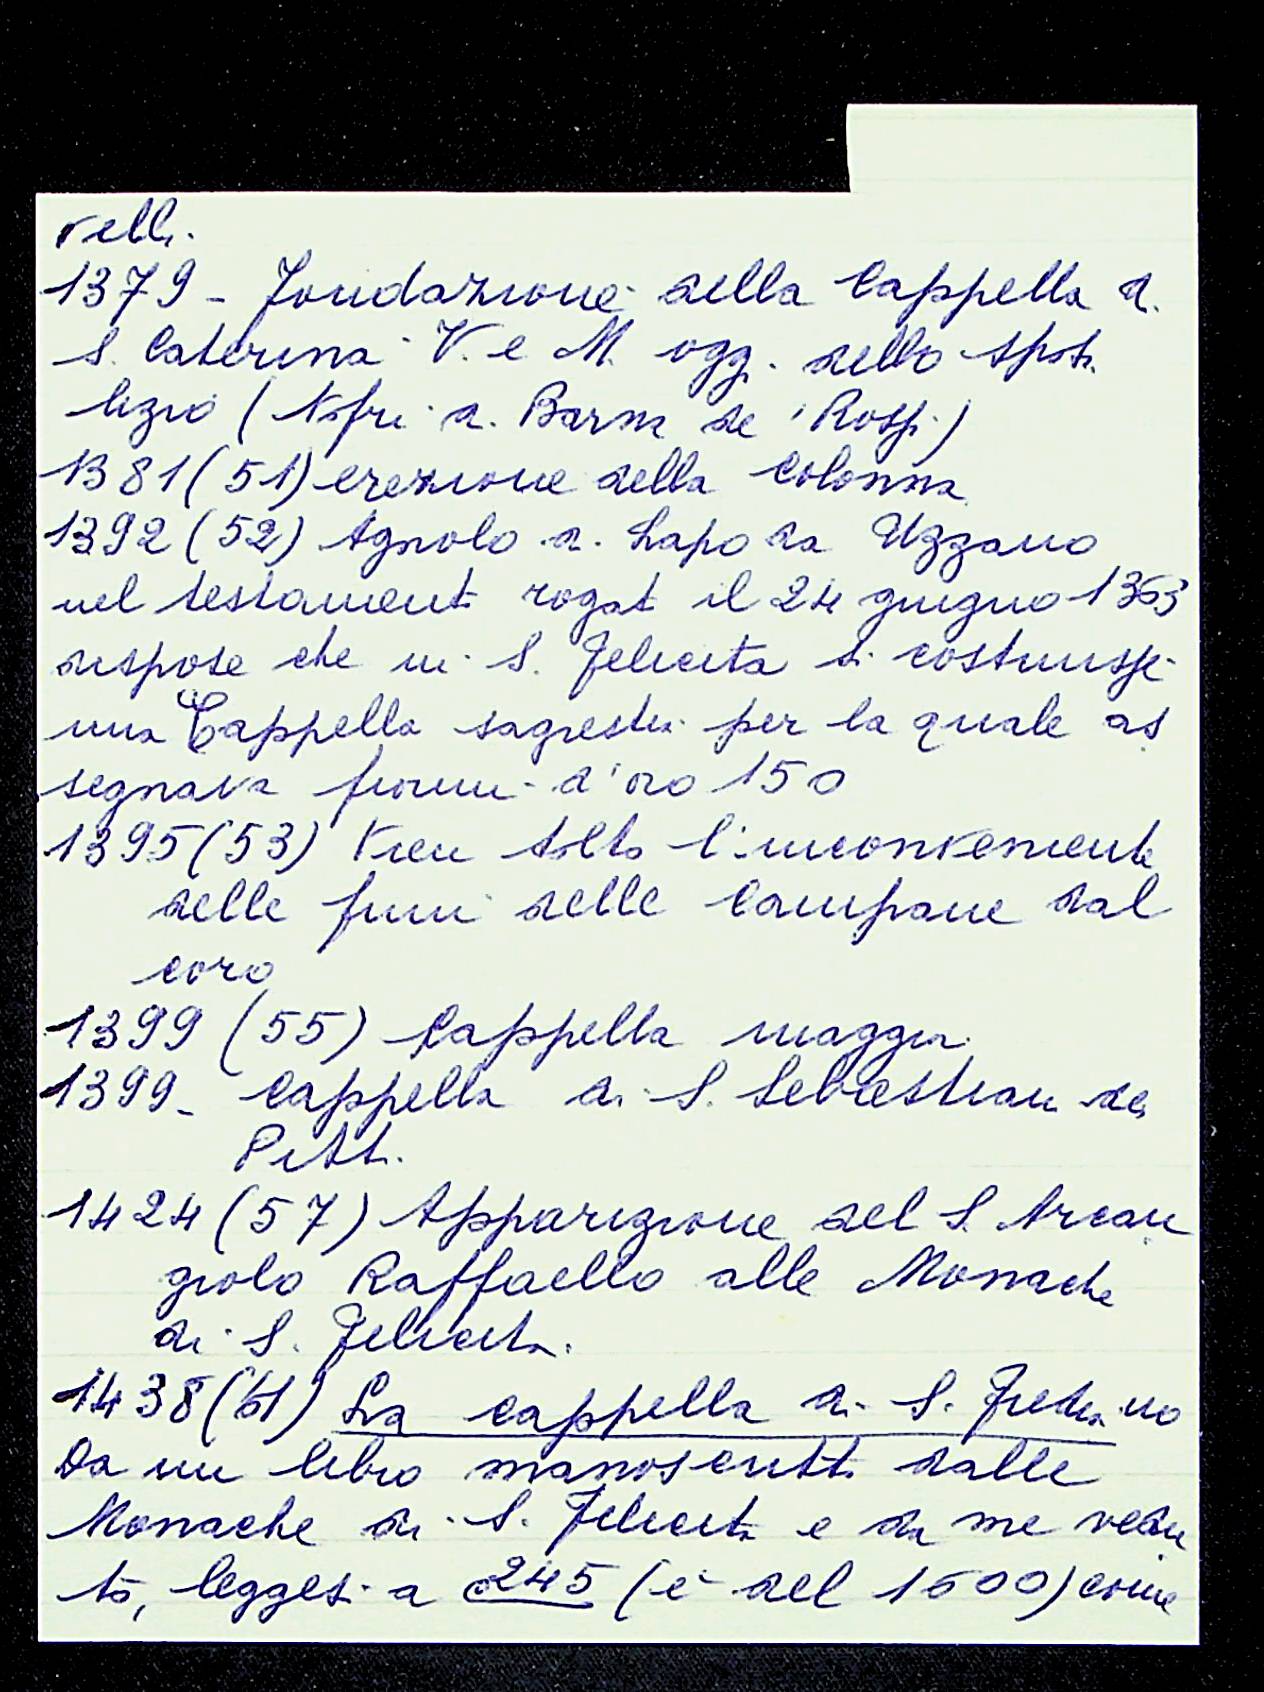 velli.
1379 - Fondazione della Cappella di
S. Caterina V. e M. oggi dello Sposa
lizio (Nofri di Barna de' Rossi)
1381 (51) erezione della Colonna
1392 (52) Agnolo di Lapo da Uzzano
nel testamento rogato il 24 giugno 1363
dispose che in S. Felicita si costruisse
una Cappella sagrestia per la quale as
segnava fiorini d'oro 150
1395 (53) Vien tolto l'inconveniente
delle funi delle Campane dal
coro
1399 (55) Cappella maggior
1399 - Cappella di S. Sebastiano dei
Pitti.
1424 (57) Apparizione del S. Arcan
giolo Raffaello alle Monache
di S. Felicita.
1438 (61) La cappella di S. Frediano
Da un libro manoscritto dalle
Monache di S. Felicita e da me vedu
to, leggesi a c 245 (è del 1600) come